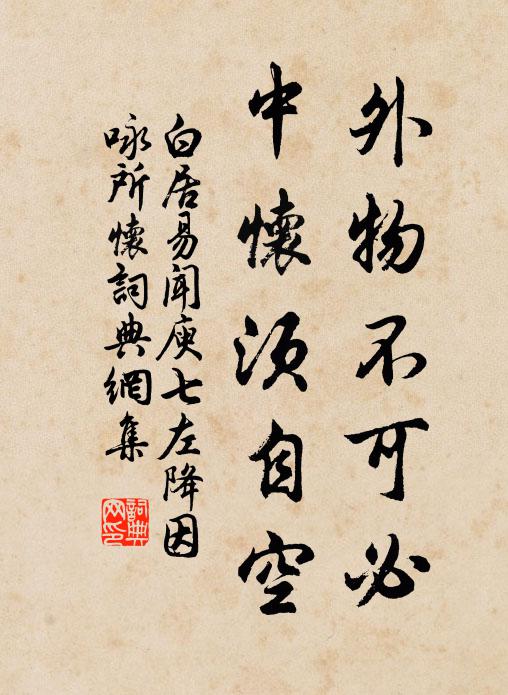 外物不可必
中懷須自空
白居易聞庾七左降因
咏所懷詞典網集
詞典網印